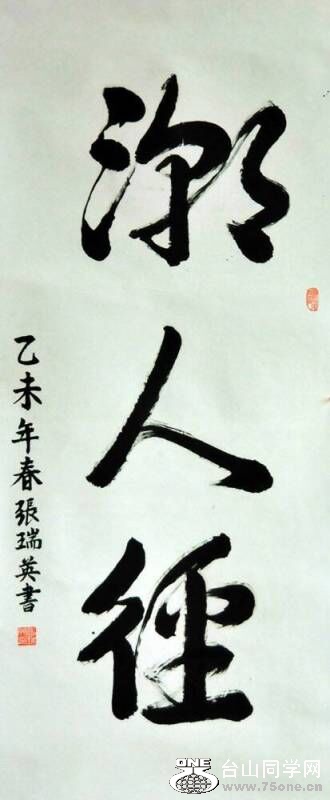 人徑
乙未年春張瑞英書
ONE
台山同学网
www.75one.cn